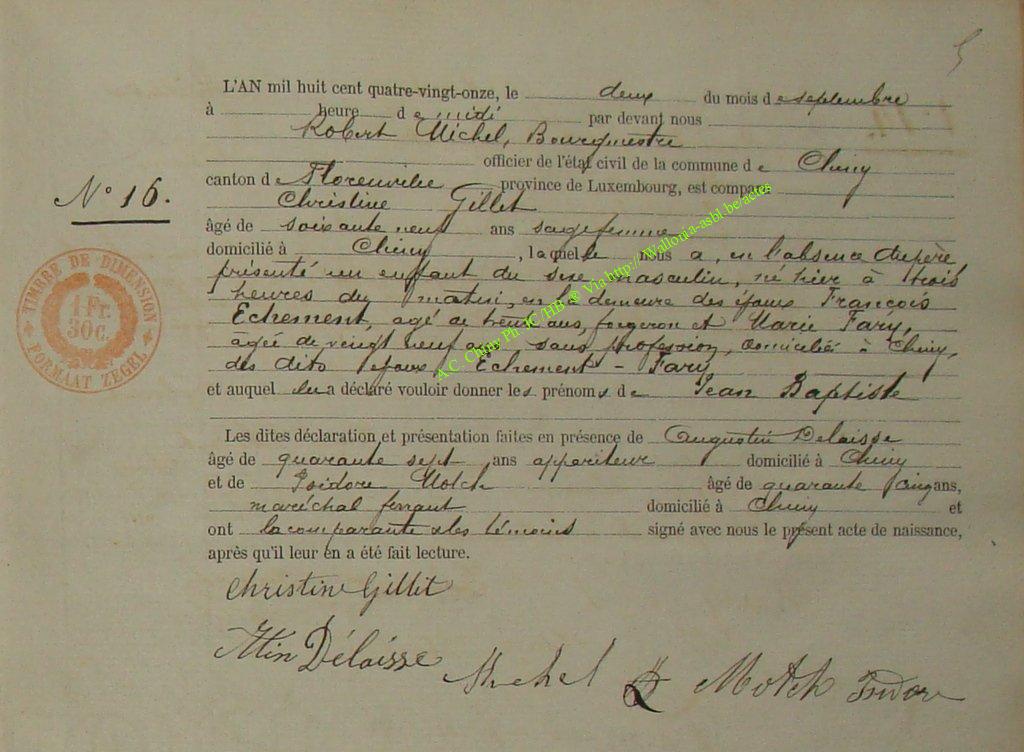 L'AN mil huit cent quatre-vingt-onze, le deux du mois de septembre
à heure de midi par devant nous
Robert Michel, Bourgmestre
officier de l'état civil de la commune de Chiny
canton de Florenville province de Luxembourg, est comparu
Christine Gillet
N° 16.
âgé de soixante neuf ans sagefemme
domicilié à Chiny, laquelle nous a, en l'absence du père
présenté un enfant du sexe masculin, né hier à trois
heures du matin, en la demeure des époux François
Echement, agé de trente ans, forgeron et Marie Fary,
agée de vingt neuf ans, sans profession, domiciliés à Chiny,
des dits époux Echement - Fary
et auquel elle a déclaré vouloir donner les prénoms de Jean Baptiste
Les dites déclaration et présentation faites en présence de Augustin Delaisse
âgé de quarante sept ans appariteur domicilié à Chiny
et de Isidore Motch âgé de quarante cinq ans,
maréchal ferrant domicilié à Chiny et
ont la comparante & les témoins signé avec nous le présent acte de naissance,
après qu'il leur en a été fait lecture.
Christine Gillet
Atin Délaisse Michel R Motch Isidore
TIMBRE DE DIMENSION
1 Fr.
30c.
FORMAAT ZEGEL
A.C. Chiny Ph JC/HB @ Via http://Wallonia-asbl.be/actes